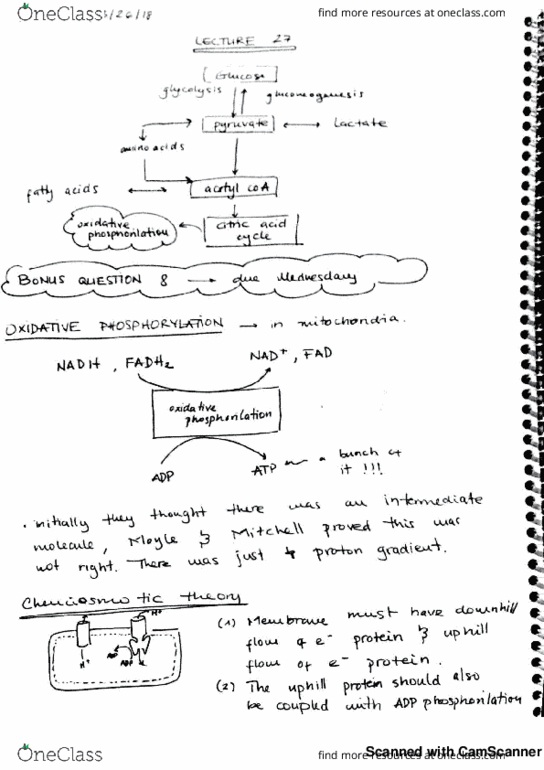 OneClass 3/26/18 find more resources at oneclass.com
LECTURE 27
Glucose
glycolysis gluconeogenesis
pyruvate Lactate
amino acids
fatty acids acetyl coA
oxidative phosphorilation
citric acid cycle
BONUS QUESTION 8 → due Wednesday
OXIDATIVE PHOSPHORYLATION → in mitochondria.
NADH , FADH₂ NAD⁺ , FAD
oxidative
phosphorilation
ADP ATP a bunch of
it !!!
. initially they thought there was an intermediate
molecule, Moyle & Mitchell proved this was
not right. There was just proton gradient.
Chemiosmotic theory
H⁺
H⁺ ADP
(1) Membrane must have downhill
flow of e⁻ protein & uphill
flow of e⁻ protein.
(2) The uphill protein should also
be coupled with ADP phosphorilation
OneClass find more resources at oneclass.com
Scanned with CamScanner